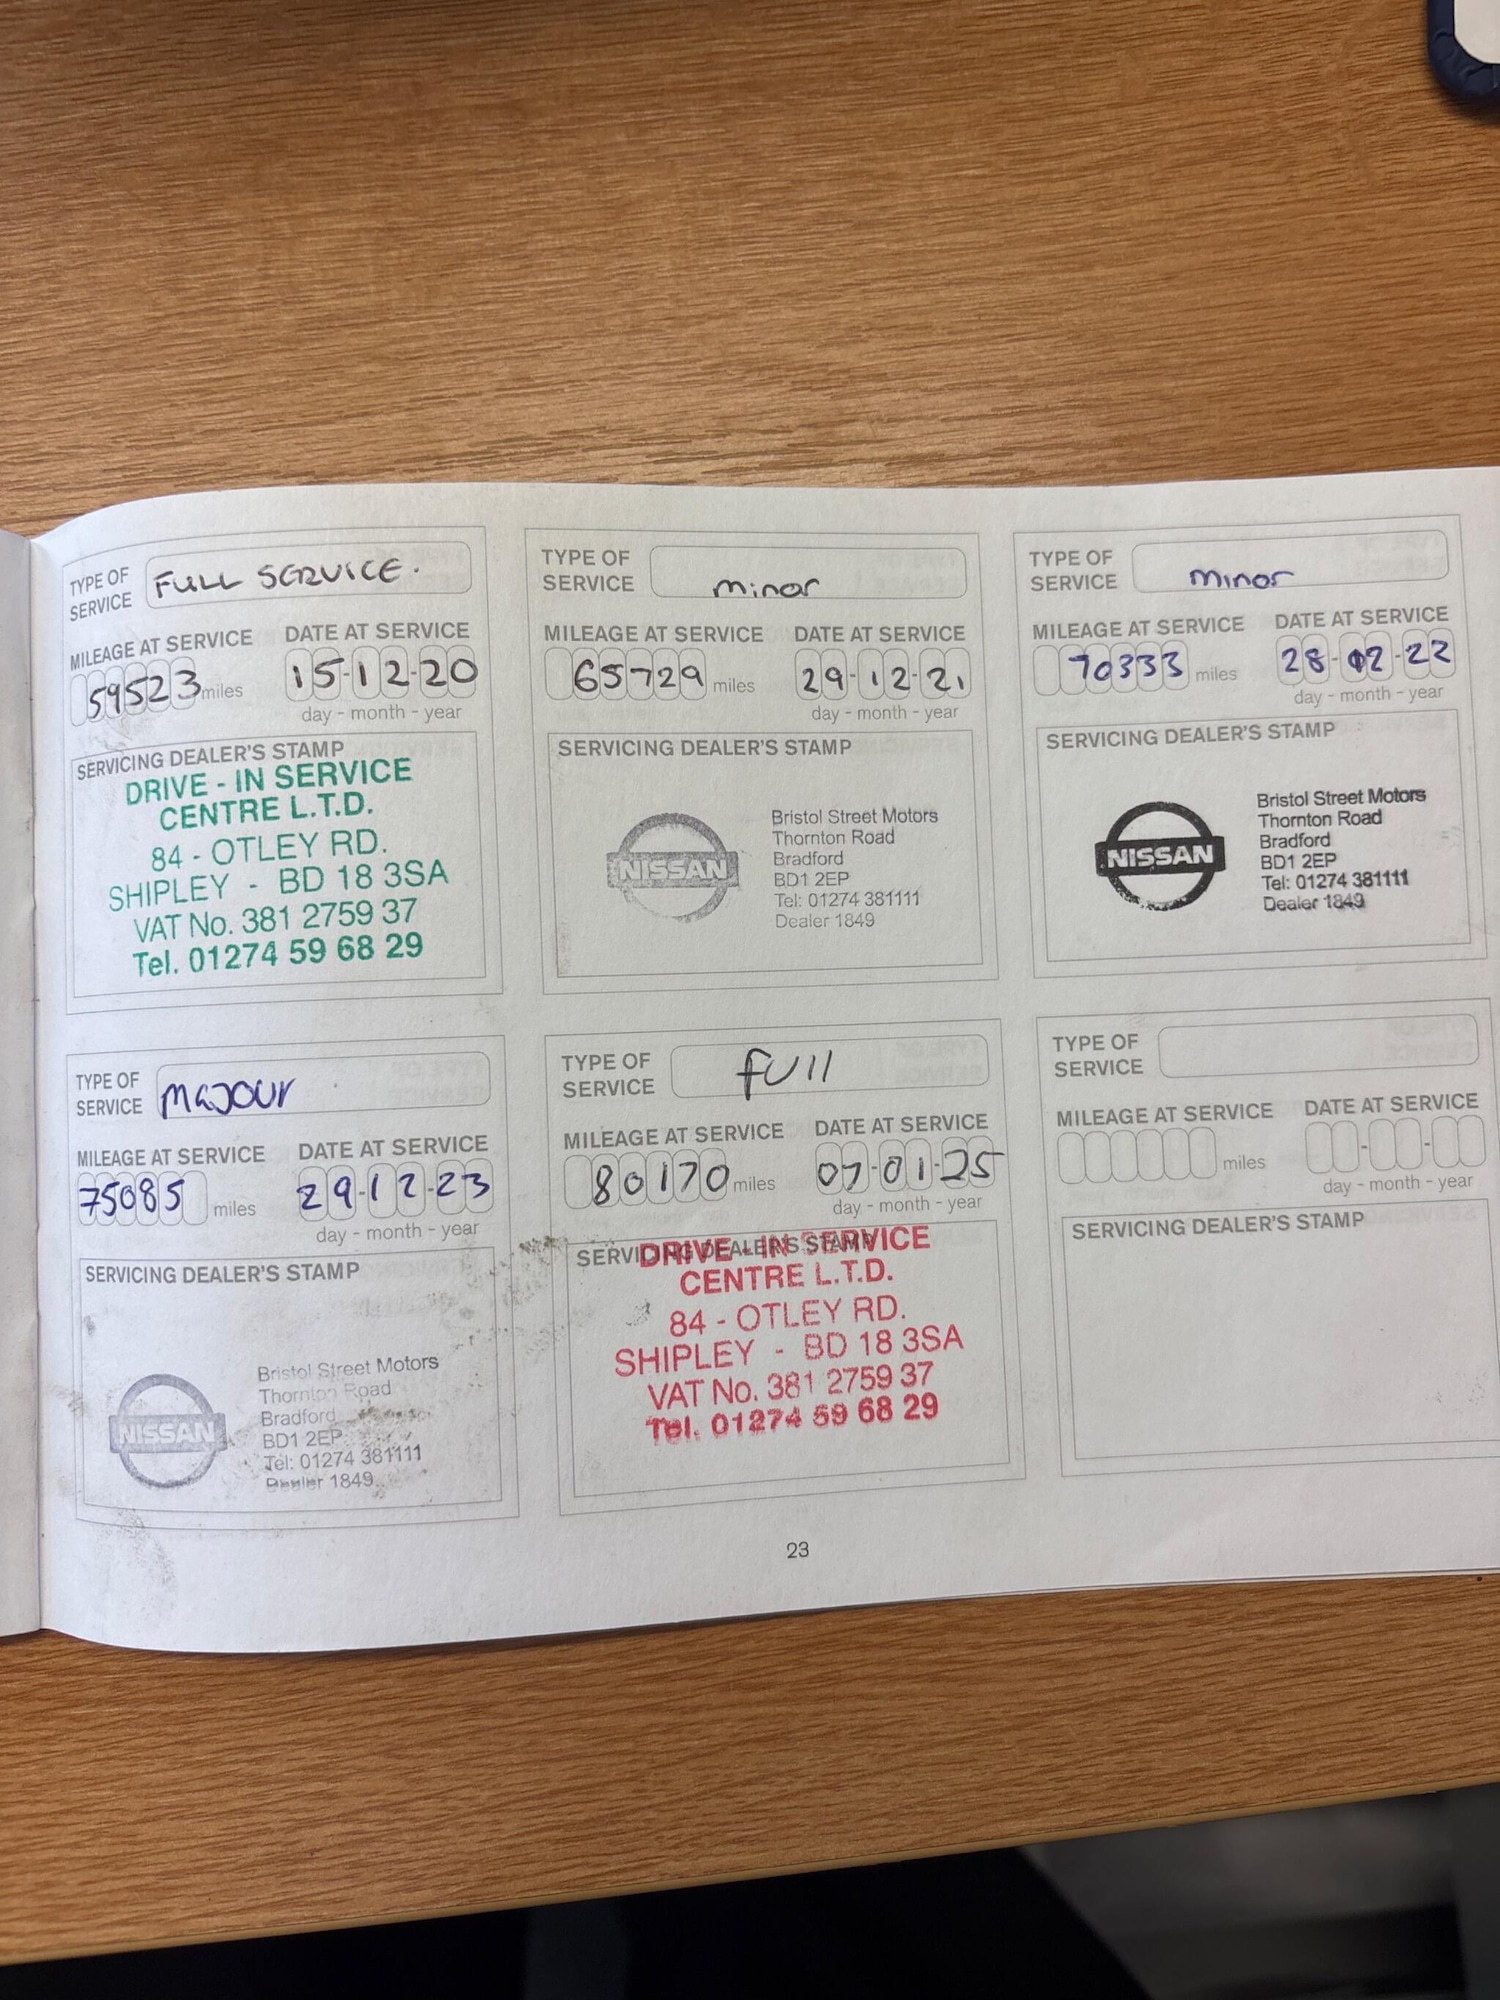 TYPE OF SERVICE FULL SERVICE.
MILEAGE AT SERVICE DATE AT SERVICE
59523 miles 15-12-20
day - month - year
SERVICING DEALER'S STAMP
DRIVE - IN SERVICE
CENTRE L.T.D.
84 - OTLEY RD.
SHIPLEY - BD 18 3SA
VAT No. 381 2759 37
Tel. 01274 59 68 29
TYPE OF SERVICE minor
MILEAGE AT SERVICE DATE AT SERVICE
65729 miles 29-12-21
day - month - year
SERVICING DEALER'S STAMP
NISSAN
Bristol Street Motors
Thornton Road
Bradford
BD1 2EP
Tel: 01274 381111
Dealer 1849
TYPE OF SERVICE minor
MILEAGE AT SERVICE DATE AT SERVICE
70333 miles 28-02-22
day - month - year
SERVICING DEALER'S STAMP
NISSAN
Bristol Street Motors
Thornton Road
Bradford
BD1 2EP
Tel: 01274 381111
Dealer 1849
TYPE OF SERVICE MaJOUr
MILEAGE AT SERVICE DATE AT SERVICE
75085 miles 29-12-23
day - month - year
SERVICING DEALER'S STAMP
NISSAN
Bristol Street Motors
Thornton Road
Bradford
BD1 2EP
Tel: 01274 381111
Dealer 1849
TYPE OF SERVICE full
MILEAGE AT SERVICE DATE AT SERVICE
80170 miles 07-01-25
day - month - year
SERVICING DEALER'S STAMP
DRIVE - IN SERVICE
CENTRE L.T.D.
84 - OTLEY RD.
SHIPLEY - BD 18 3SA
VAT No. 381 2759 37
Tel. 01274 59 68 29
TYPE OF SERVICE
MILEAGE AT SERVICE DATE AT SERVICE
miles
day - month - year
SERVICING DEALER'S STAMP
23